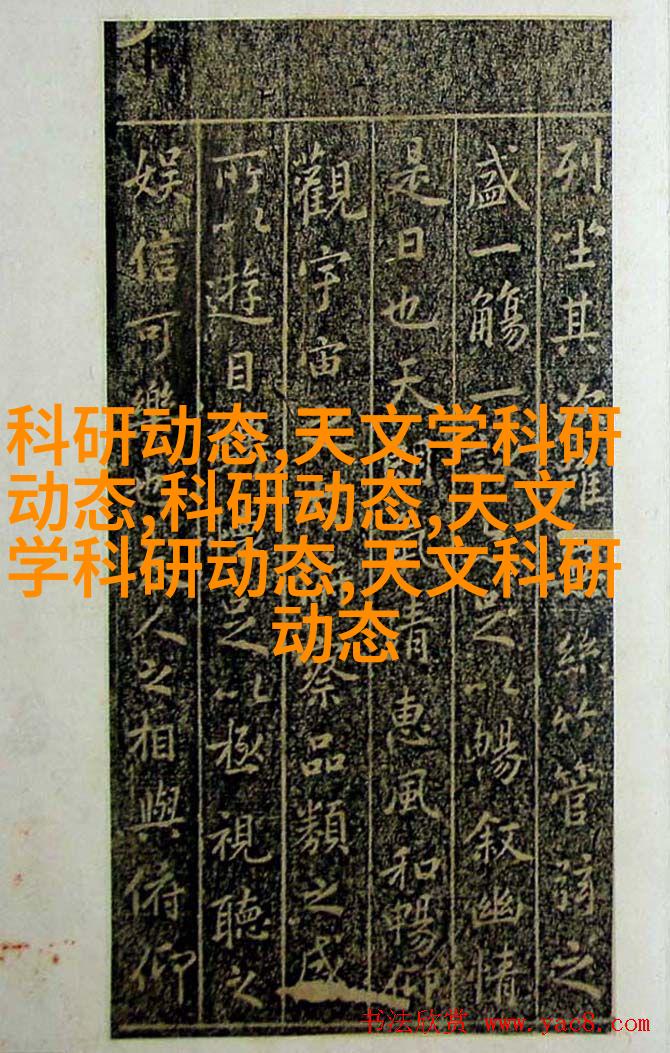 列坐其次雖絲竹管弦之
盛一觴一足以暢叙幽情
是日也天清惠風和暢仰
觀宇宙察品類之盛
所以遊目足以極視聽之
娱信可樂也人之相與俯仰
科研动态,天文学科研
动态,科研动态,天文
学科研动态,天文科研
动态
书法欣赏 www.yac8.com